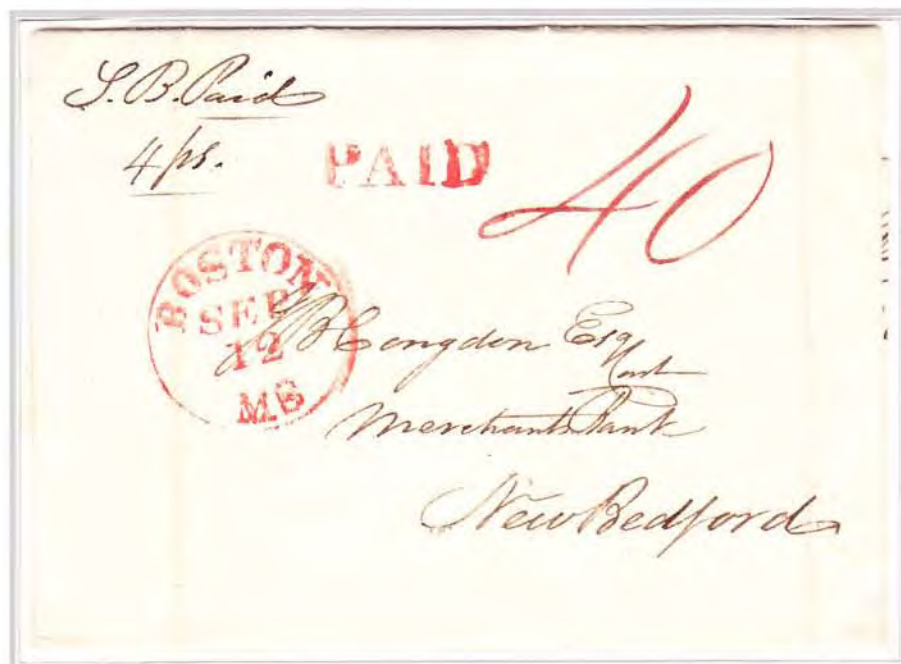 S. B. Paid
4/ps.
PAID
40
BOSTON
SEP
12
MS
J B Congdon Esq
Cash
Merchants Bank
New Bedford